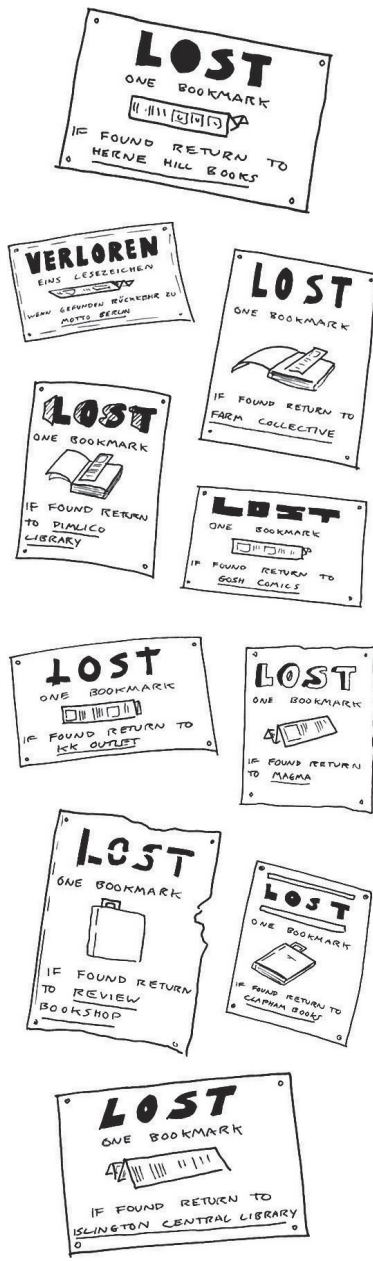 LOST
ONE BOOKMARK
IF FOUND RETURN TO
HERNE HILL BOOKS
VERLOREN
EINS LESEZEICHEN
WENN GEFUNDEN RÜCKKEHR ZU
MOTTO BERLIN
LOST
ONE BOOKMARK
IF FOUND RETURN TO
FARM COLLECTIVE
LOST
ONE BOOKMARK
IF FOUND RETURN
TO PIMLICO
LIBRARY
LOST
ONE BOOKMARK
IF FOUND RETURN TO
GOSH COMICS
LOST
ONE BOOKMARK
IF FOUND RETURN TO
KK OUTLET
LOST
ONE BOOKMARK
IF FOUND RETURN
TO MAGMA
LOST
ONE BOOKMARK
IF FOUND RETURN
TO REVIEW
BOOKSHOP
LOST
ONE BOOKMARK
IF FOUND RETURN TO
CLAPHAM BOOKS
LOST
ONE BOOKMARK
IF FOUND RETURN TO
ISLINGTON CENTRAL LIBRARY